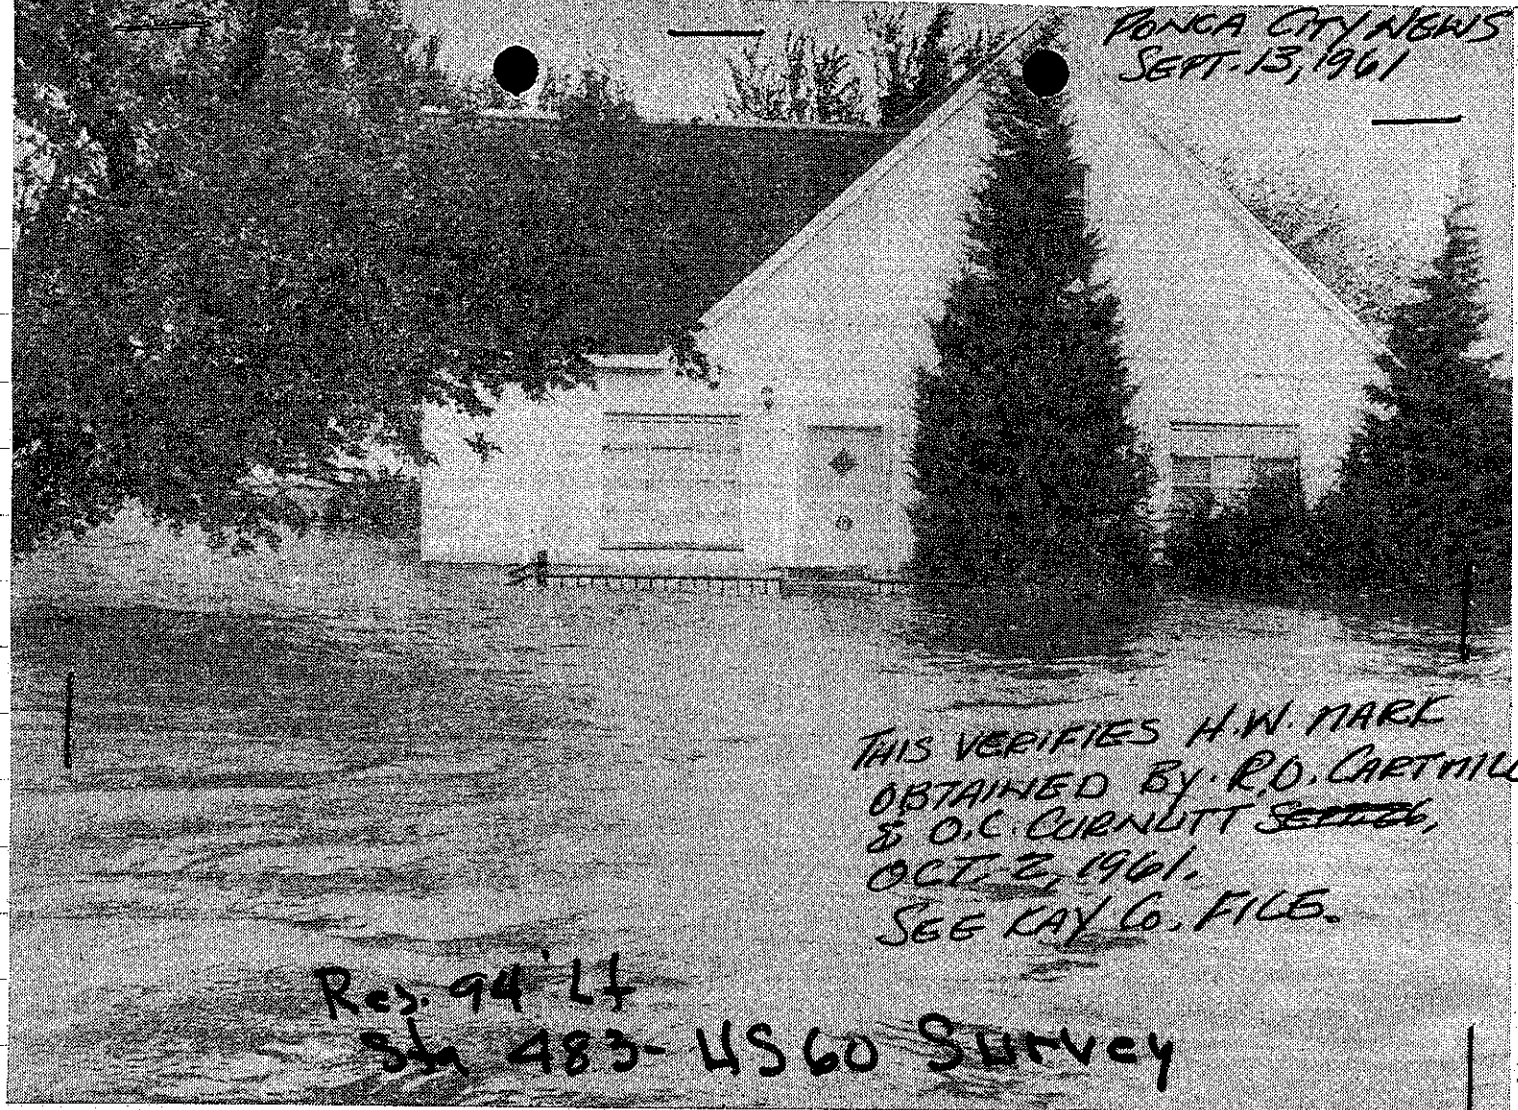 PONCA CITY NEWS
SEPT. 13, 1961
THIS VERIFIES H.W. MARK
OBTAINED BY R.D. CARTMILL
& O.C. CURNUTT
OCT. 2, 1961.
SEE KAY CO. FILE.
Res. 94' Lt
Sta 483- US60 Survey